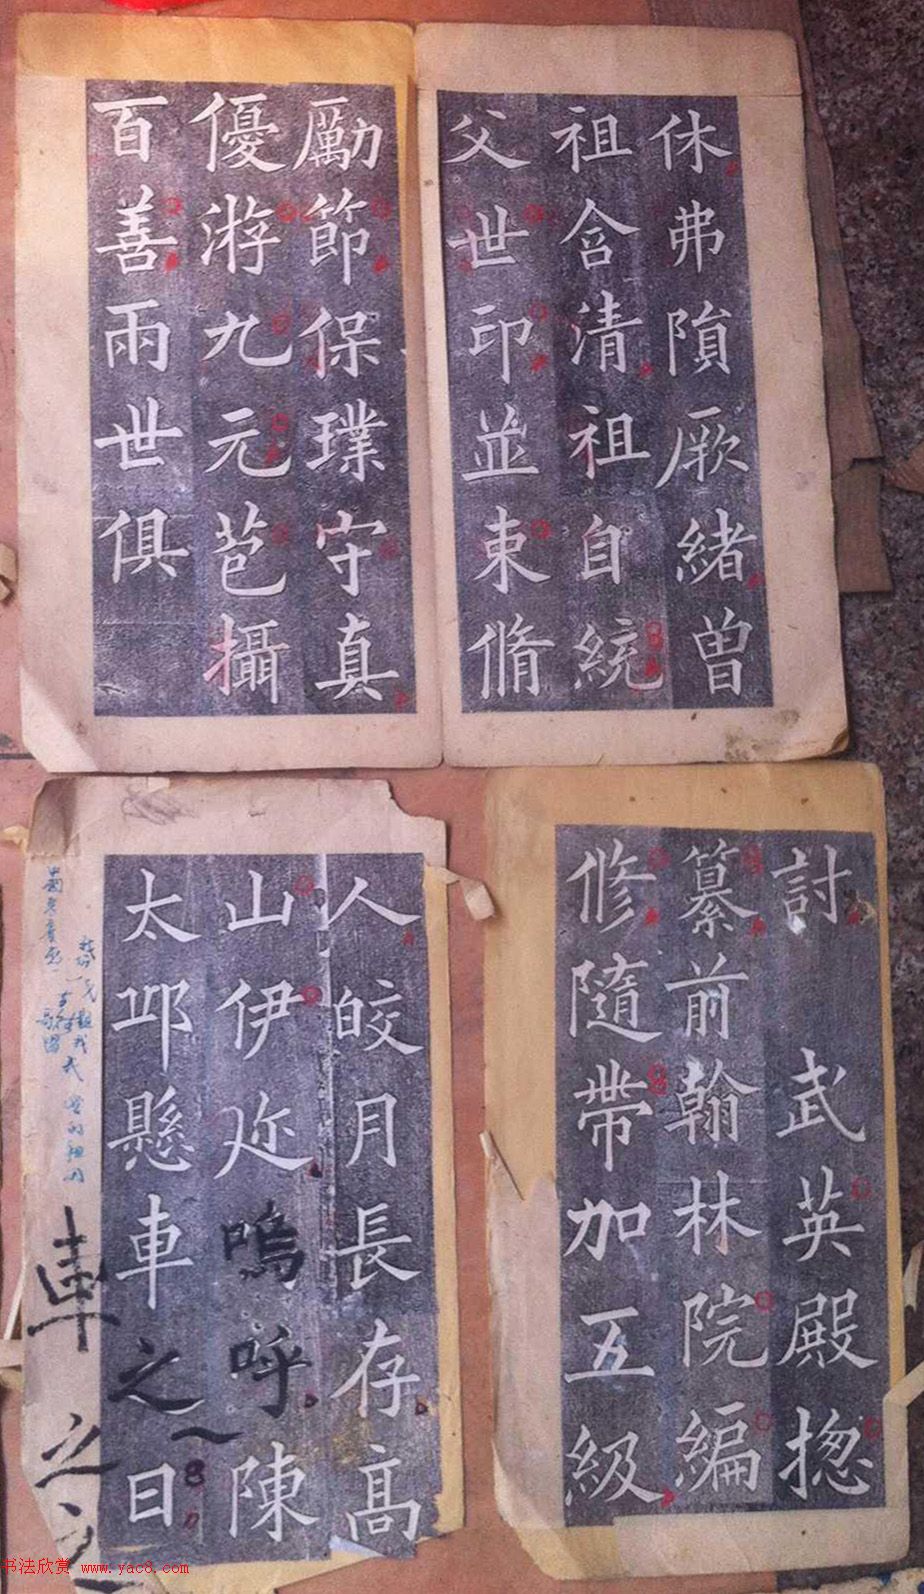 休弗隕厥緒曽
祖含清祖自統
父世印並東脩
勵節保璞守真
優游九元芭攝
百善兩世俱
討武英殿揔
纂前翰林院編
修隨帶加五級
人皎月長存高
山伊迩嗚呼陳
太邱懸車之日
車之
书法欣赏 www.yac8.com